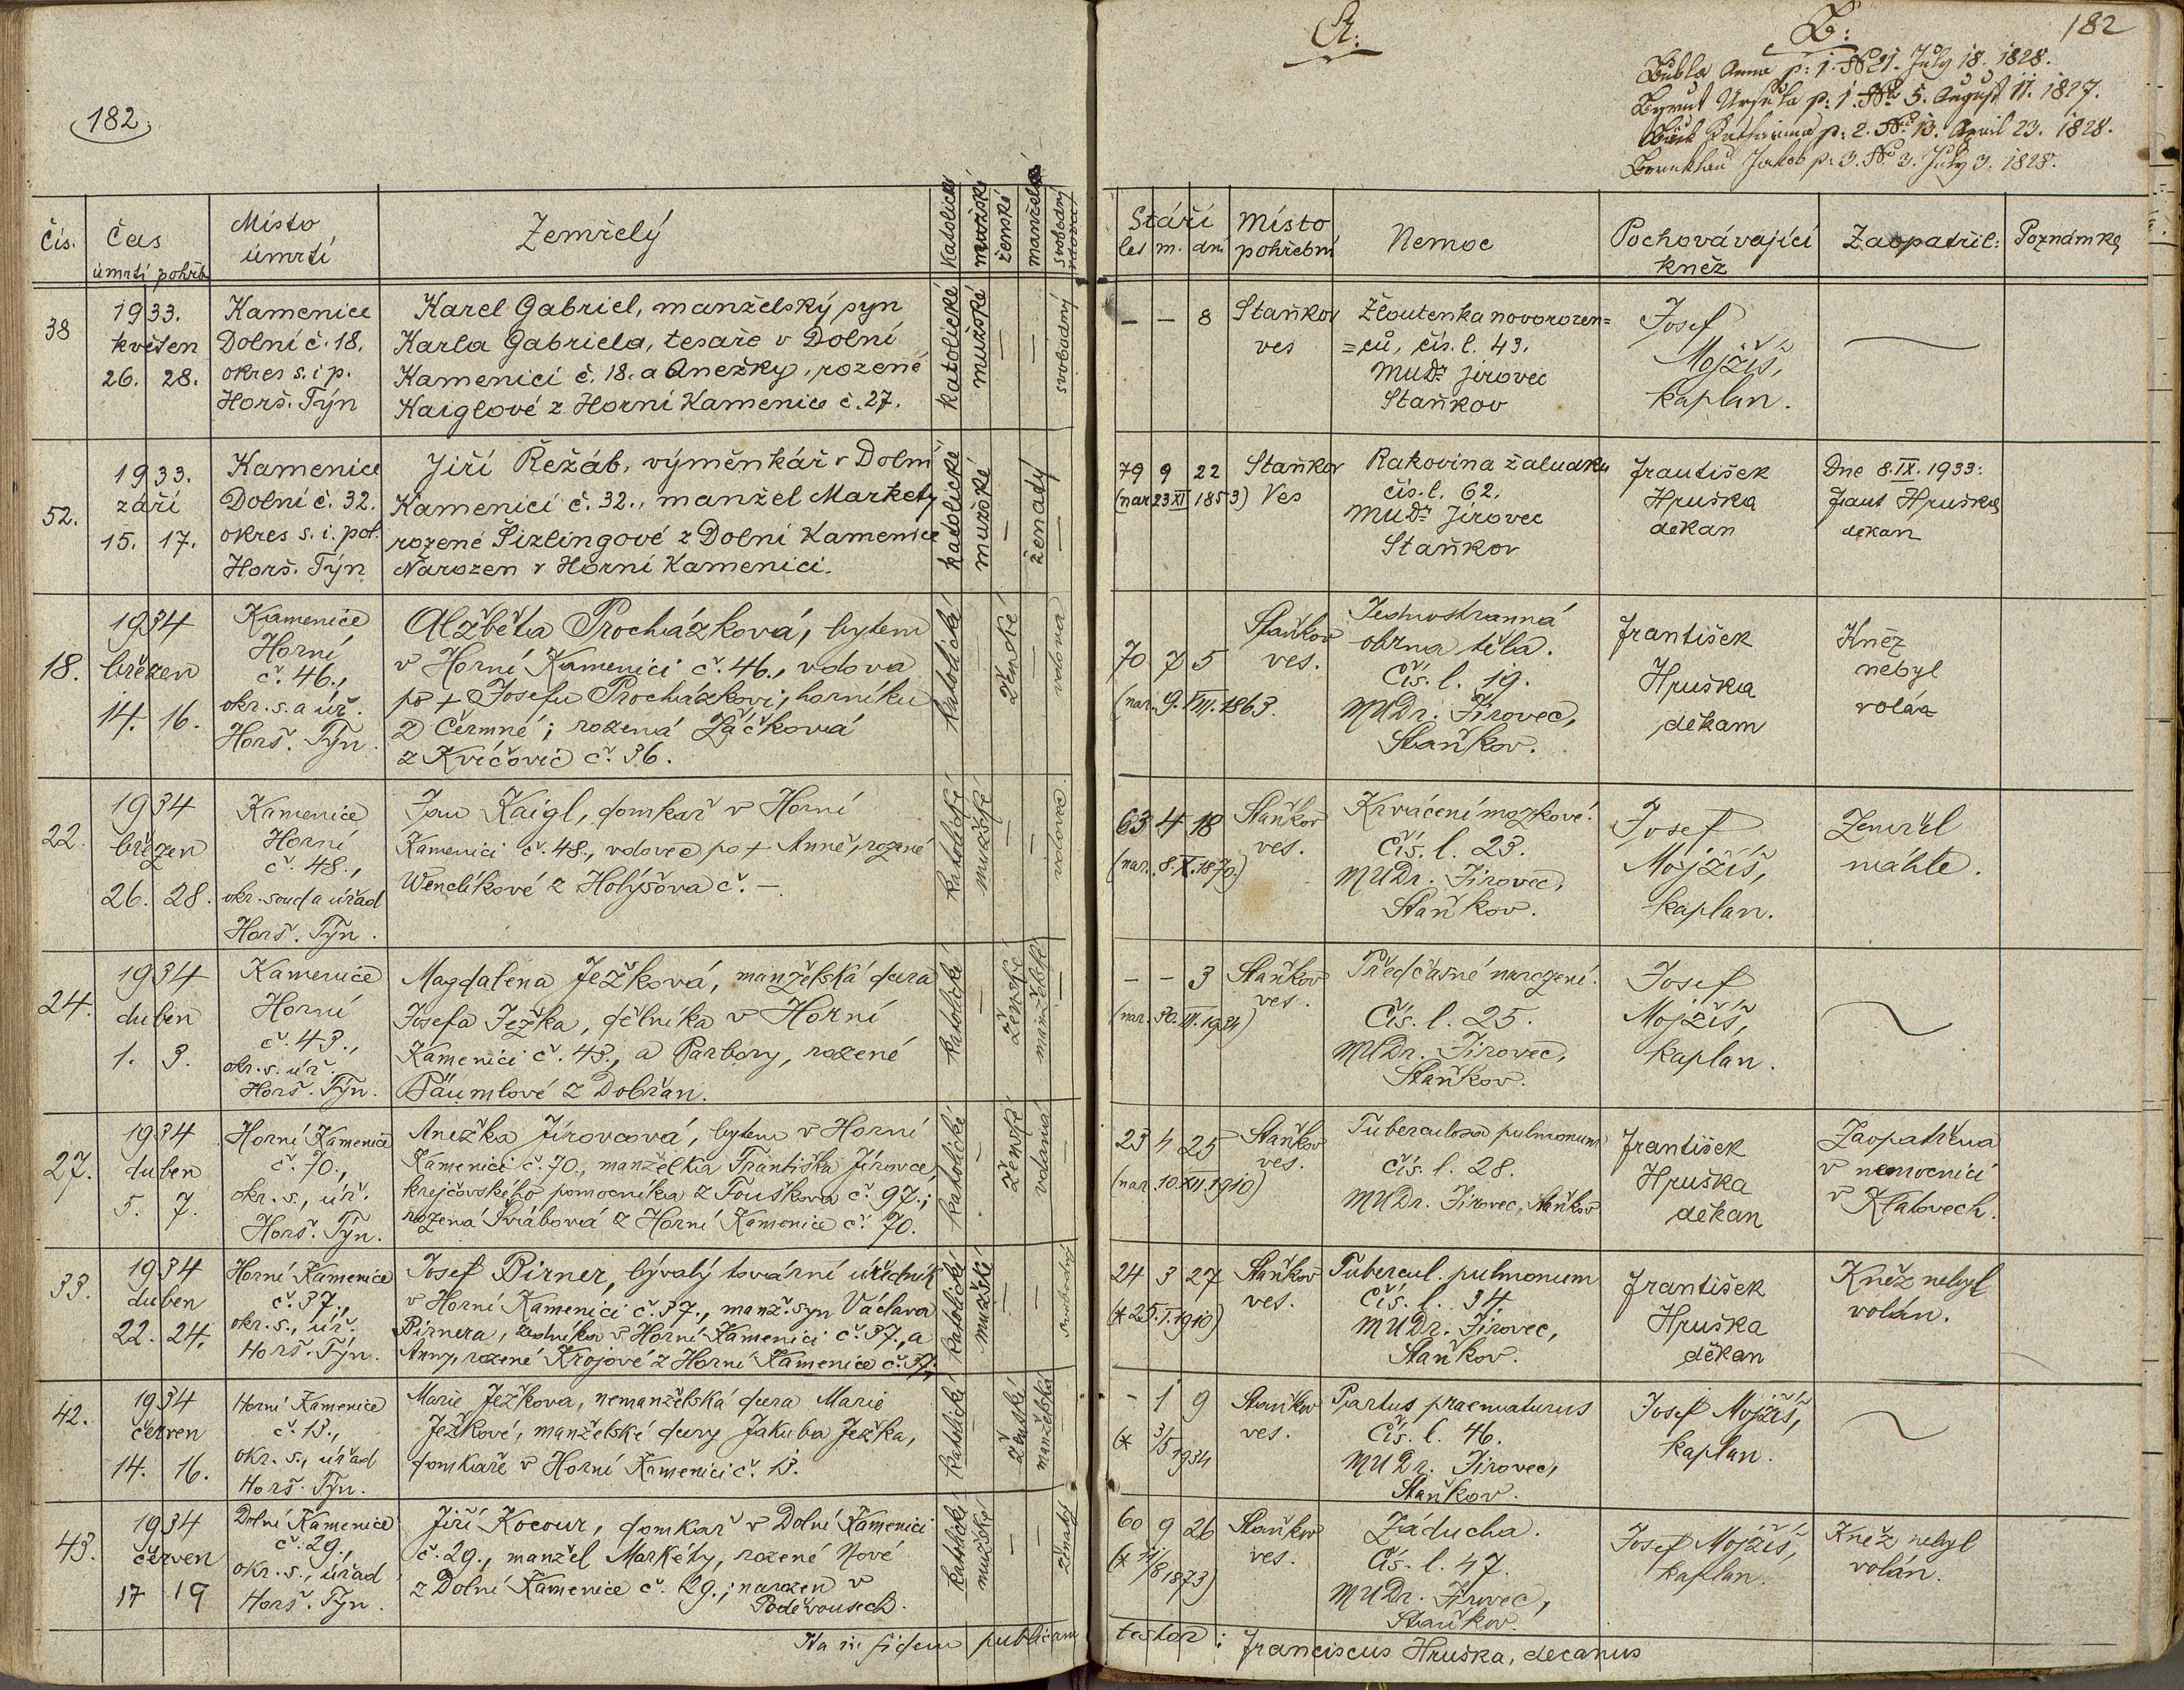 182.
Čís.
Čas
úmrtí pohřb
Místo
úmrtí
Zemřelý
katolické
mužské
ženské
manžels
svobodný
vdovec
38
1933.
květen
26. 28.
Kamenice
Dolní č. 18.
okres s. i p.
Horš. Týn
Karel Gabriel, manželský syn
Karla Gabriela, tesaře v Dolní
Kamenici č. 18. a Anežky, rozené
Kaiglové z Horní Kamenice č. 27.
katolické
mužské
—
—
svobodný
52.
1933.
září
15. 17.
Kamenice
Dolní č. 32.
okres s. i. pol.
Horš. Týn
Jiří Řežáb, výměnkář v Dolní
Kamenici č. 32., manžel Markety
rozené Šizlingové z Dolní Kamenice
Narozen v Horní Kamenici.
katolické
mužské
—
ženadý
—
18.
1934
březen
14. 16.
Kamenice
Horní
č. 46.,
okr. s. a úř.
Horš. Týn.
Alžběta Procházková, bytem
v Horní Kamenici č. 46., vdova
po + Josefu Procházkovi, horníku
z Čermné; rozená Žáčková
z Kvíčovic č. 36.
katolické
—
ženské
—
vdova
22.
1934
březen
26. 28.
Kamenice
Horní
č. 48.,
okr. soud a úřad
Horš. Týn.
Jan Kaigl, domkař v Horní
Kamenici č. 48., vdovec po + Anně, rozené
Wenclíkové z Holýšova č. —.
katolické
mužské
—
—
vdovec
24.
1934
duben
1. 3.
Kamenice
Horní
č. 43.,
okr. s. úř.
Horš. Týn.
Magdalena Ježková, manželská dcera
Josefa Ježka, dělníka v Horní
Kamenici č. 43., a Barbory, rozené
Bäumlové z Dobřan.
katolické
—
ženské
manželské
—
27.
1934
duben
5. 7.
Horní Kamenice
č. 70.,
okr. s., úř.
Horš. Týn.
Anežka Jírovcová, bytem v Horní
Kamenici č. 70., manželka Františka Jírovce,
krejčovského pomocníka z Touškova č. 97.;
rozená Švábová z Horní Kamenice č. 70.
katolické
—
ženské
vdaná
—
33.
1934
duben
22. 24.
Horní Kamenice
č. 37.,
okr. s., úř.
Horš. Týn.
Josef Pirner, bývalý tovární úředník
v Horní Kamenici č. 37., manž. syn Václava
Pirnera, zedníka v Horní Kamenici č. 37., a
Anny, rozené Krojové z Horní Kamenice č. 37.
katolické
mužské
—
—
svobodný
42.
1934
červen
14. 16.
Horní Kamenice
č. 13.,
okr. s., úřad
Horš. Týn.
Marie Ježkova, nemanželská dcera Marie
Ježkové, manželské dcery Jakuba Ježka,
domkaře v Horní Kamenici č. 13.
katolické
—
ženské
manželská
—
43.
1934
červen
17 19
Dolní Kamenice
č. 29.,
okr. s., úřad
Horš. Týn.
Jiří Kocour, domkař v Dolní Kamenici
č. 29., manžel Markéty, rozené Nové
z Dolní Kamenice č. 29.; narozen v
Poděvousech.
katolický
mužský
—
—
ženatý
Ita in fidem publicam
A.
B:
182
Bubla Anna p: 1. No 21. July 18. 1828.
Ursula p: 1. No 5. August 11. 1827.
Katharina p: 2. No 13. April 23. 1828.
Jakob p: 3. No 3. July 3. 1828.
Stáří
let m. dni
Místo
pohřební
Nemoc
Pochovávající
kněz
Zaopatřil:
Poznámka
— — 8
Staňkov
ves
Žloutenka novorozen=
=ců, čís. l. 43.
MUDr Jírovec
Staňkov
Josef
Mojžíš,
kaplan.
79 9 22
(nar. 23 XI 1853)
Staňkov
Ves
Rakovina žaludku
čís. l. 62.
MUDr Jírovec
Staňkov
František
Hruška
děkan
Dne 8. IX. 1933:
Frant Hruška
děkan
70 7 5
(nar. 9. VIII. 1863.
Staňkov
ves.
Jednostranná
obrna těla.
Čís. l. 19.
MUDr. Jírovec,
Staňkov.
František
Hruška
děkam
Kněz
nebyl
volán
63 4 18
(nar. 8. X. 1870.)
Staňkov
ves.
Krvácení mozkové.
Čís. l. 23.
MUDr. Jírovec,
Staňkov.
Josef
Mojžíš,
kaplan.
Zemřel
náhle.
— — 3
(nar. 30. III. 1934)
Staňkov
ves.
Předčasné narození.
Čís. l. 25.
MUDr. Jírovec,
Staňkov.
Josef
Mojžíš,
kaplan.
23 4 25
(nar. 10. XII. 1910)
Staňkov
ves.
Tuberculosa pulmonum
čís. l. 28.
MUDr. Jírovec, Staňkov
František
Hruška
děkan
Zaopatřena
v nemocnici
v Klatovech.
24 3 27
(* 25. 1. 1910)
Staňkov
ves.
Tubercul. pulmonum
Čís. l. 34.
MUDr. Jírovec,
Staňkov.
František
Hruška
děkan
Kněz nebyl
volán.
— 1 9
(* 3/5 1934
Staňkov
ves.
Partus praematurus
Čís. l. 46.
MUDr. Jírovec,
Staňkov.
Josef Mojžíš,
kaplan.
60 9 26
(* 21/8 1873)
Staňkov
ves.
Záducha.
Čís. l. 47.
MUDr. Jírovec,
Staňkov.
Josef Mojžíš,
kaplan.
Kněz nebyl
volán.
testor: Franciscus Hruška, decanus